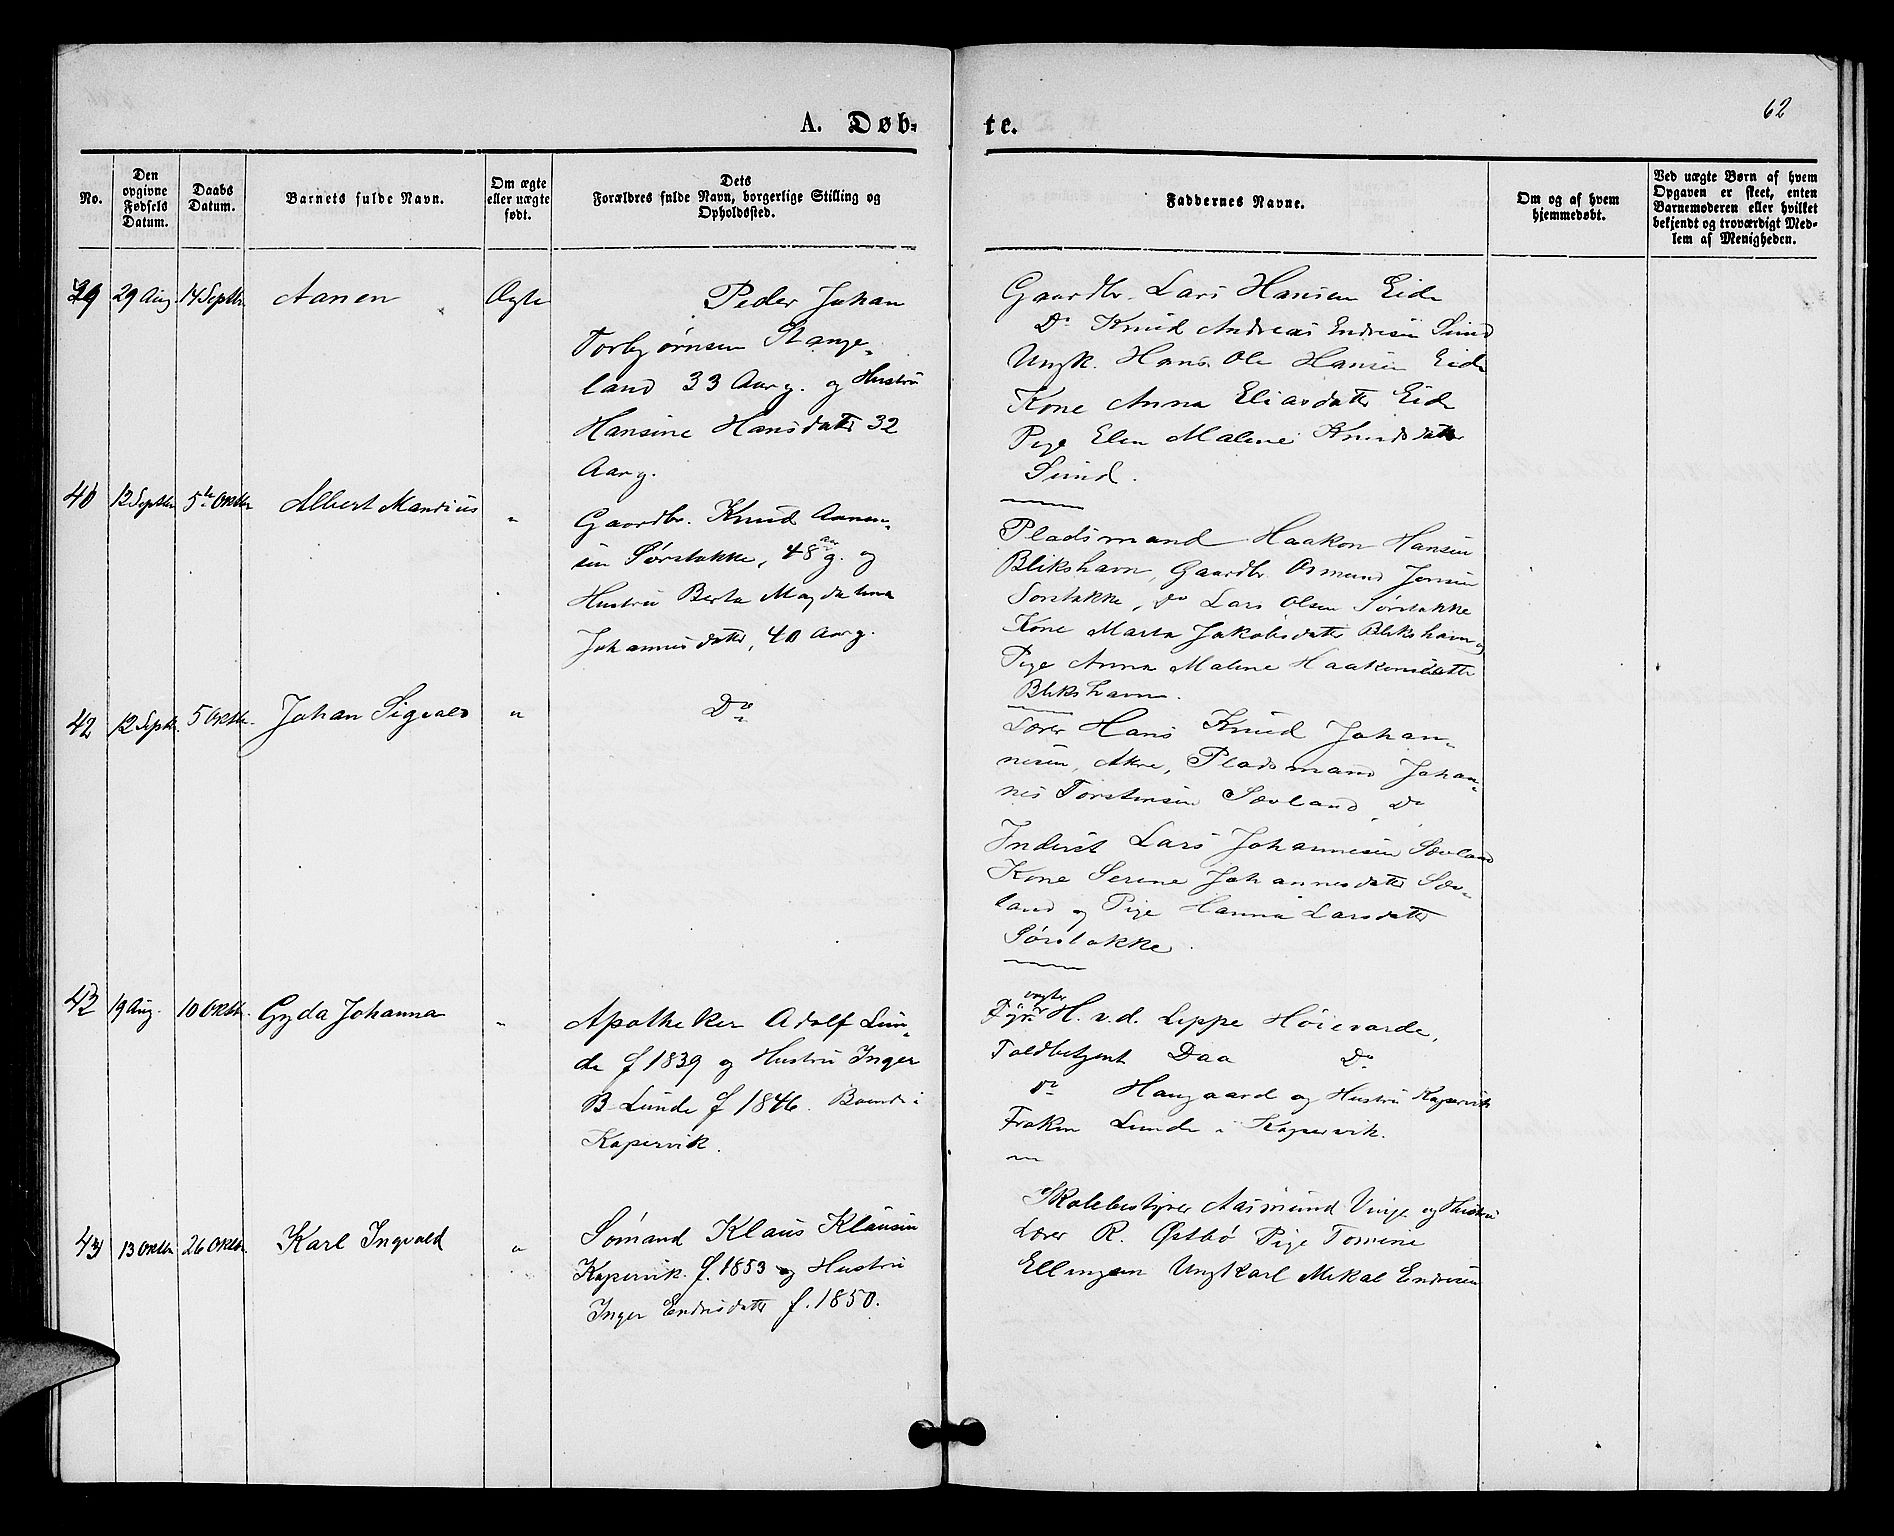 62
A. Døb-
te.
No.
Den opgivne Fødsels Datum.
Daabs Datum.
Barnets fulde Navn.
Om ægte eller uægte født.
Dets Forældres fulde Navn, borgerlige Stilling og Opholdssted.
Faddernes Navne.
Om og af hvem hjemmedøbt.
Ved uægte Børn af hvem Opgaven er skeet, enten Barnemoderen eller hvilket bekjendt og troværdigt Medlem af Menigheden.
39 29 Aug 14 Septbr. Aanen Ægte
Peder Johan
Torbjørnsen Stange-
land 33 Aar g. og Hustru
Hansine Hansdatter 32
Aar g.
Gaardbr. Lars Hansen Eide
Do Knud Andreas Endresen Sund
Ungk. Hans Ole Hansen Eide
Kone Anna Eliasdatter Eide
Pige Elen Maline Knudsdatter
Sund.
40 12 Septbr 5te Oktbr Albert Mandius "
Gaardbr. Knud Aanen-
sen Sørstokke, 48 Aar g. og
Hustru Berta Magdalena
Johannesdatter, 40 Aar g.
Pladsmand Haakon Hansen
Blikshavn, Gaardbr. Osmund Jensen
Sørstokke, Do Lars Olsen Sørstokke
Kone Marta Jakobsdatter Blikshavn og
Pige Anna Maline Haakonsdatter
Blikshavn.
42 12 Septbr. 5 Oktbr. Johan Sigvald "
Do
Lærer Hans Knud Johan-
nesen, Akre, Pladsmand Johan-
nes Torstensen Sævland, Do
Inderst Lars Johannesen Sævland
Kone Serine Johannesdatter Sæv-
land og Pige Hanna Larsdatter
Sørstokke.
42 19 Aug. 10 Oktbr. Gyda Johanna "
Apotheker Adolf Lun-
de f 1839 og Hustru Inger
B. Lunde f 1846. Boende i
Kopervik.
Fyrvogter H. v.d. Lippe Høievarde,
Toldbetjent Daa Do
do Haugaard og Hustru Kopervik
Frøken Lunde i Kopervik.
43 13 Oktbr 26 Oktbr. Karl Ingvald "
Sømand Klaus Klausen
Kopervik. f. 1853 og Hustru
Inger Endresdatter f. 1850.
Skolebestyrer Aasmund Vinje og Hustru
Lærer R. Østbø Pige Tomine
Ellingsen Ungkarl Mikal Endresen